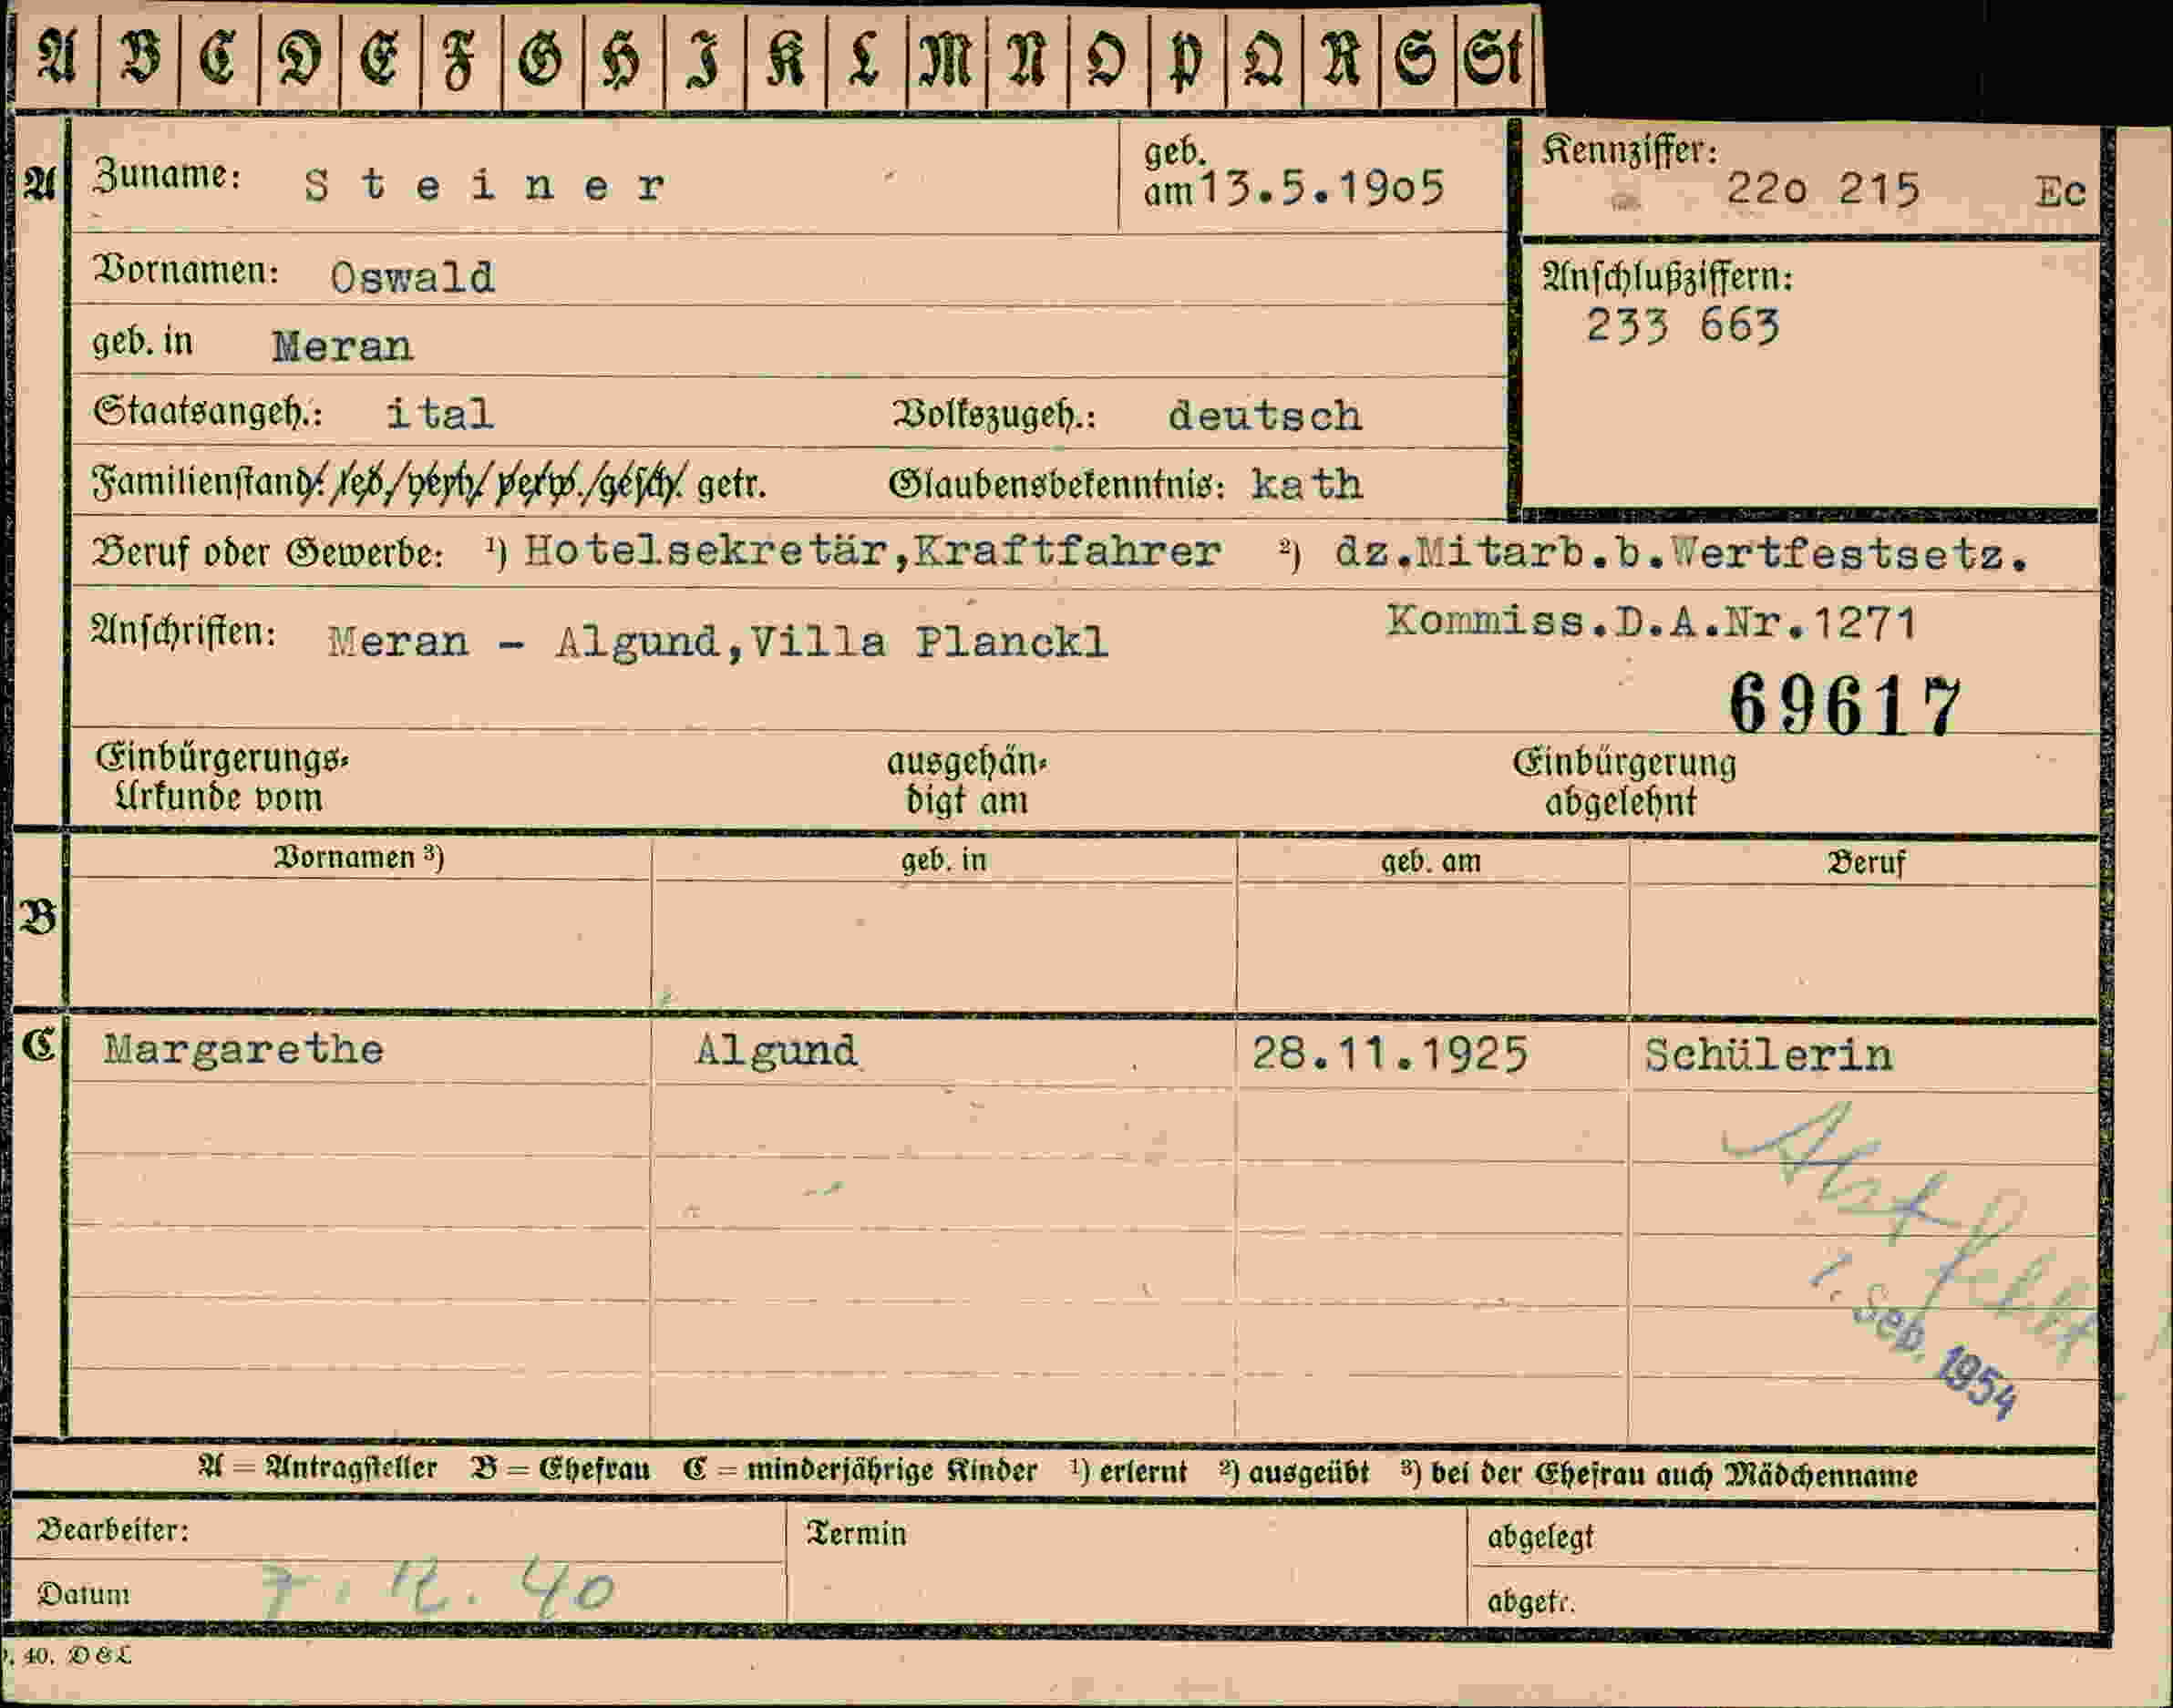 A B C D E F G H I K L M N O P Q R S St
A Zuname: S t e i n e r geb. am 13.5.19o5 Kennziffer: 22o 215 Ec
Vornamen: Oswald Anschlußziffern:
233 663
geb. in Meran
Staatsangeh.: ital Volkszugeh.: deutsch
Familienstand: led./verh./verw./gesch. getr. Glaubensbekenntnis: kath
Beruf oder Gewerbe: ¹) Hotelsekretär,Kraftfahrer ²) dz.Mitarb.b.Wertfestsetz.
Kommiss.D.A.Nr.1271
Anschriften: Meran - Algund,Villa Planckl
69617
Einbürgerungs= ausgehän= Einbürgerung
Urkunde vom digt am abgelehnt
Vornamen ³) geb. in geb. am Beruf
B
C Margarethe Algund 28.11.1925 Schülerin
Akt fehlt
1. Sep. 1954
A = Antragsteller B = Ehefrau C = minderjährige Kinder ¹) erlernt ²) ausgeübt ³) bei der Ehefrau auch Mädchenname
Bearbeiter: Termin abgelegt
Datum 7. 12. 40 abgetr.
40. D&L